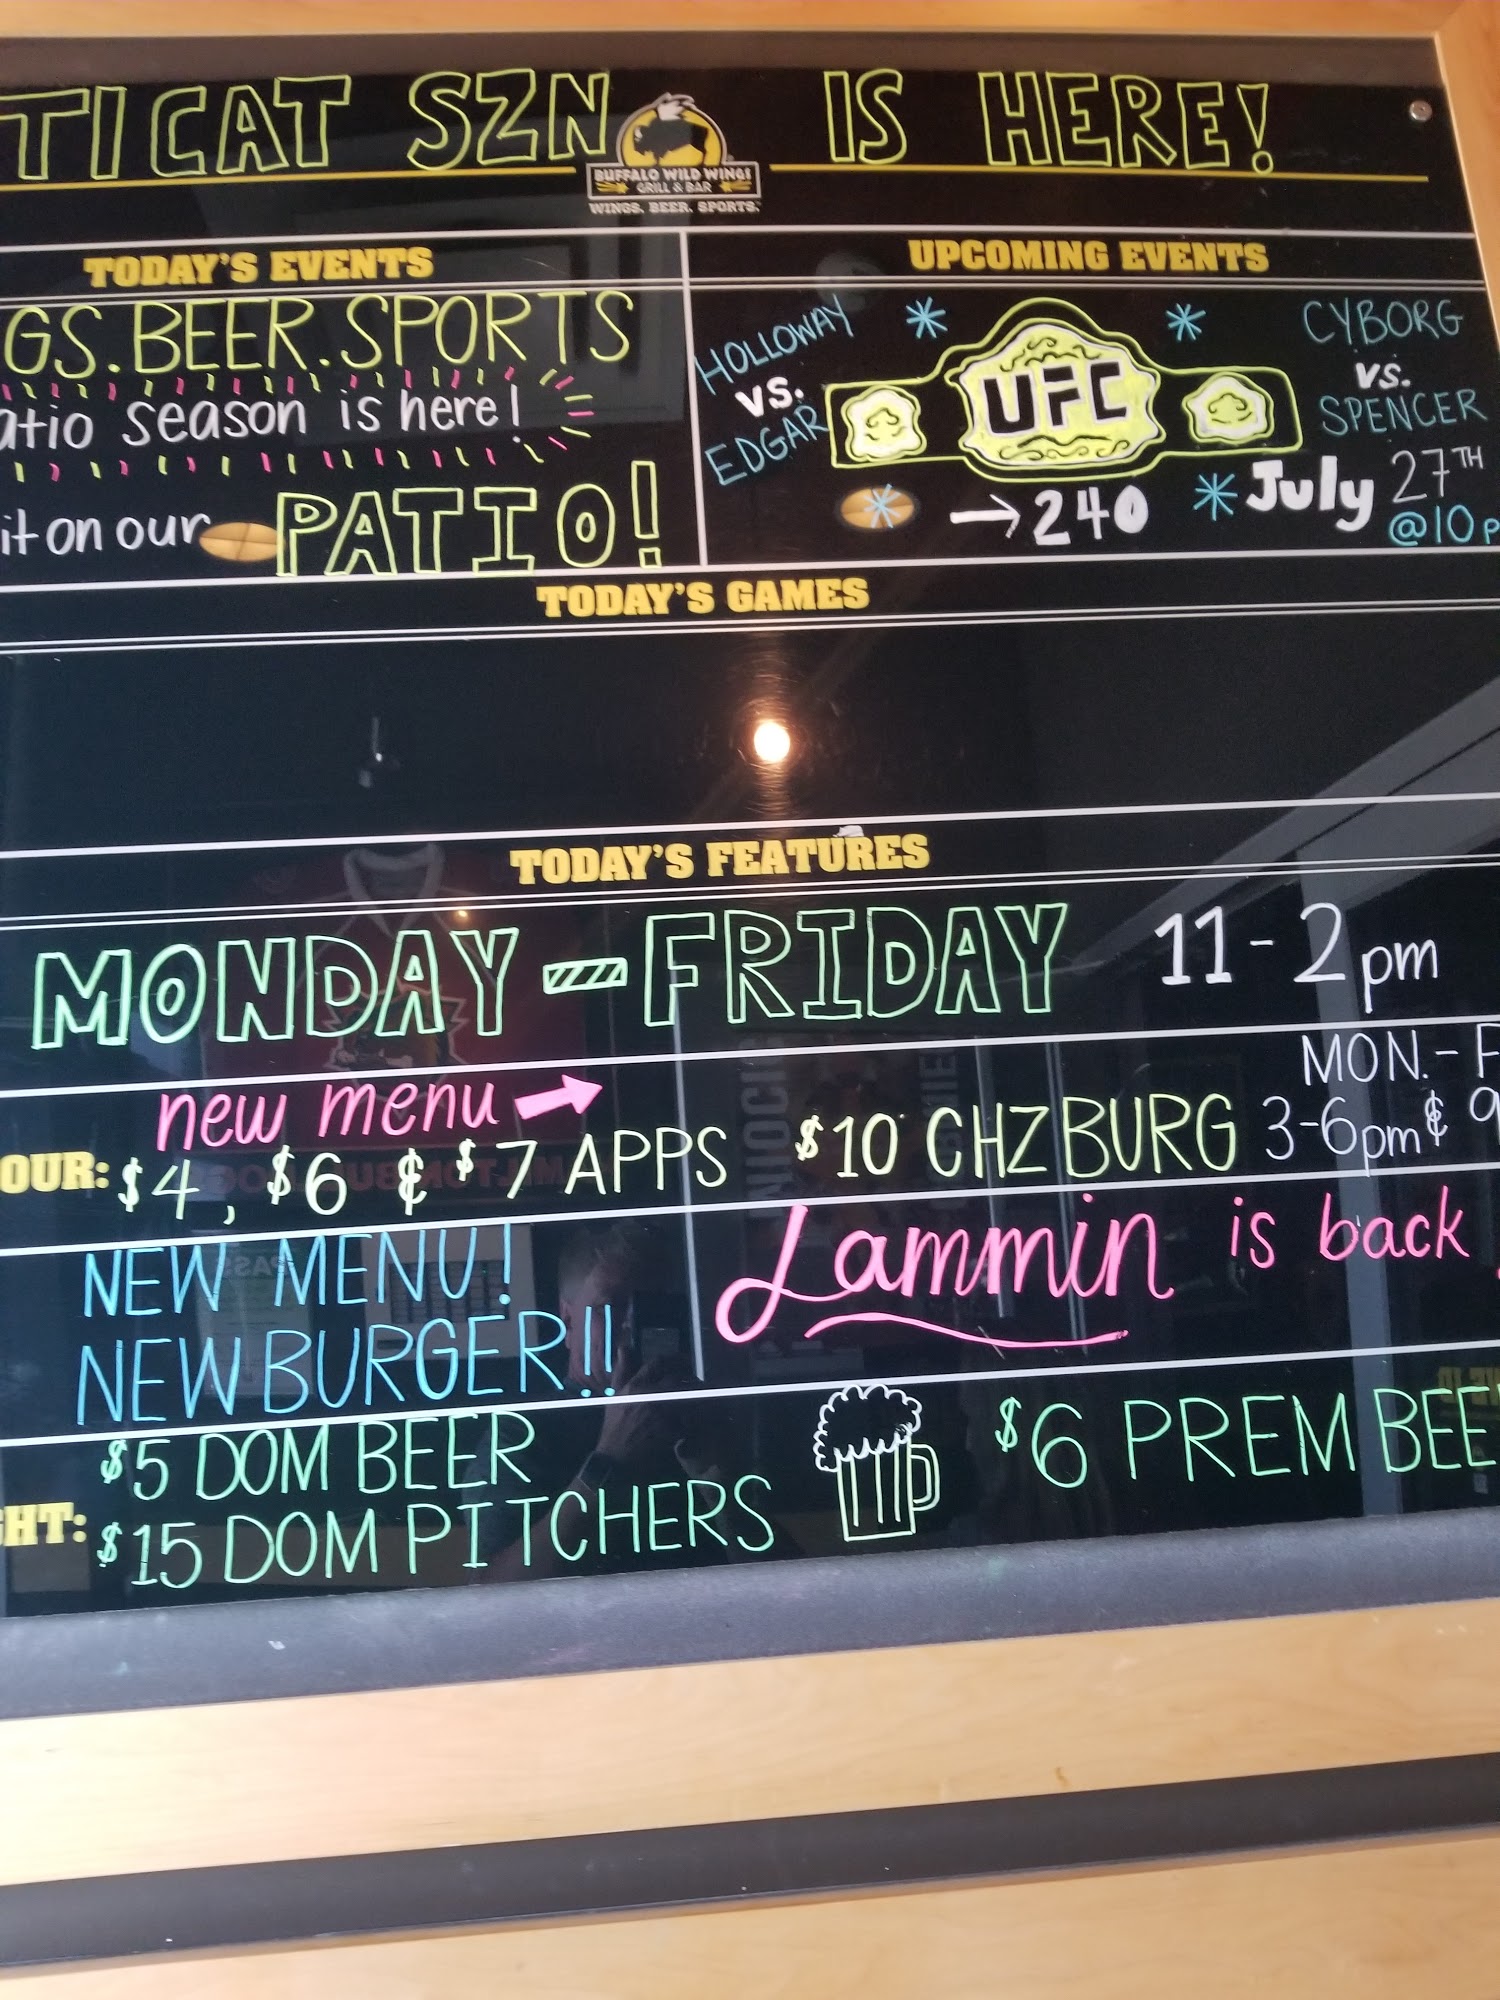 TICAT SZN IS HERE!
BUFFALO WILD WINGS
GRILL & BAR
WINGS. BEER. SPORTS.
TODAY'S EVENTS
GS.BEER.SPORTS
atio season is here!
it on our PATIO!
UPCOMING EVENTS
HOLLOWAY
vs.
EDGAR
UFC
→ 240
CYBORG
vs.
SPENCER
July 27TH
@10p
TODAY'S GAMES
TODAY'S FEATURES
MONDAY - FRIDAY 11 - 2pm
new menu →
OUR: $4, $6 & $7 APPS $10 CHZ BURG
MON.- F
3-6pm & 9
NEW MENU!
NEW BURGER!!
Lammin is back
$5 DOM BEER
GHT: $15 DOM PITCHERS
$6 PREM BEE